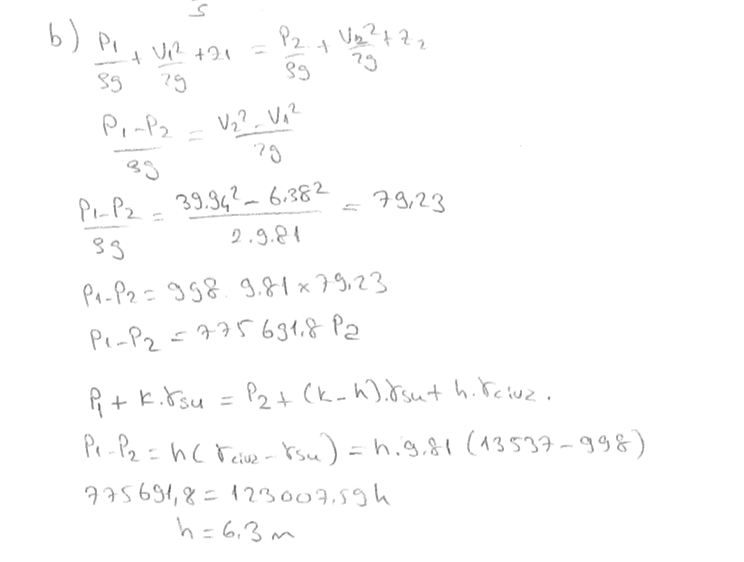 s
b) P1/ρg + V1²/2g + z1 = P2/ρg + V2²/2g + z2
P1-P2/ρg = V2² - V1²/2g
P1-P2/ρg = 39.94² - 6.38²/2.9.81 = 79,23
P1-P2 = 998. 9.81 x 79,23
P1-P2 = 775691,8 Pa
P1 + k.γsu = P2 + (k-h).γsu + h.γciva.
P1-P2 = h(γciva - γsu) = h.9.81 (13537-998)
775691,8 = 123007,59h
h = 6,3 m